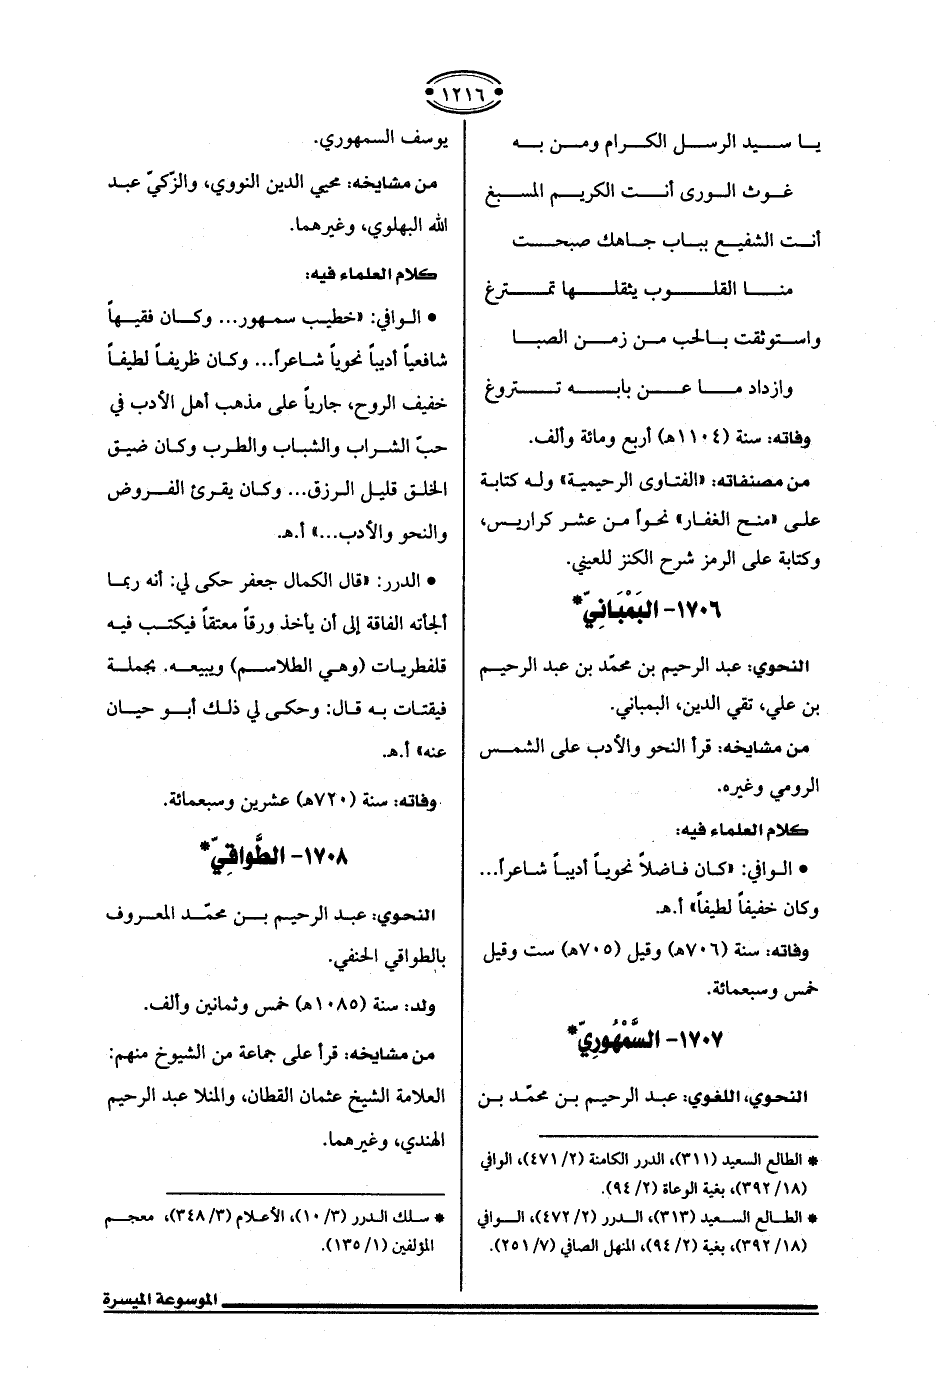 ١٢١٦
يا سيد الرسل الكرام ومن به
غوث الورى أنت الكريم المسبغ
أنت الشفيع بباب جاهك صبحت
منا القلوب بثقلها تمترغ
واستوثقت بالحب من زمن الصبا
وازداد ما عن بابه تتروغ
وفاته: سنة (١١٠٤هـ) أربع ومائة وألف.
من مصنفاته: «الفتاوى الرحيمية» وله كتابة
على «منح الغفار» نحواً من عشر كراريس،
وكتابة على الرمز شرح الكنز للعيني.
١٧٠٦- البَمْبَانيّ*
النحوي: عبد الرحيم بن محمّد بن عبد الرحيم
بن علي، تقي الدين، البمباني.
من مشايخه: قرأ النحو والأدب على الشمس
الرومي وغيره.
كلام العلماء فيه:
• الوافي: «كان فاضلاً نحوياً أديباً شاعراً...
وكان خفيفاً لطيفاً» أ.هـ.
وفاته: سنة (٧٠٦هـ) وقيل (٧٠٥هـ) ست وقيل
خمس وسبعمائة.
١٧٠٧- السَّمْهُورِيّ*
النحوي، اللغوي: عبد الرحيم بن محمّد بن
* الطالع السعيد (٣١١)، الدرر الكامنة (٢/ ٤٧١)، الوافي
(١٨/ ٣٩٢)، بغية الوعاة (٢/ ٩٤).
* الطالع السعيد (٣١٣)، الدرر (٢/ ٤٧٢)، الوافي
(١٨/ ٣٩٢)، بغية (٢/ ٩٤)، المنهل الصافي (٧/ ٢٥١).
يوسف السمهوري.
من مشايخه: محيي الدين النووي، والزّكيّ عبد
الله البهلوي، وغيرهما.
كلام العلماء فيه:
• الوافي: «خطيب سمهور... وكان فقيهاً
شافعياً أديباً نحوياً شاعراً... وكان ظريفاً لطيفاً
خفيف الروح، جارياً على مذهب أهل الأدب في
حبّ الشراب والشباب والطرب وكان ضيق
الخلق قليل الرزق... وكان يقرئ الفروض
والنحو والأدب...» أ.هـ.
• الدرر: «قال الكمال جعفر حكى لي: أنه ربما
ألجأته الفاقة إلى أن يأخذ ورقاً معتقاً فيكتب فيه
قلفطريات (وهي الطلاسم) ويبيعه. بجملة
فيقتات به قال: وحكى لي ذلك أبو حيان
عنه» أ.هـ.
وفاته: سنة (٧٢٠هـ) عشرين وسبعمائة.
١٧٠٨- الطَّواقيّ*
النحوي: عبد الرحيم بن محمّد المعروف
بالطواقي الحنفي.
ولد: سنة (١٠٨٥هـ) خمس وثمانين وألف.
من مشايخه: قرأ على جماعة من الشيوخ منهم:
العلامة الشيخ عثمان القطان، والمنلا عبد الرحيم
الهندي، وغيرهما.
* سلك الدرر (٣/ ١٠)، الأعلام (٣/ ٣٤٨)، معجم
المؤلفين (١/ ١٣٥).
الموسوعة الميسرة